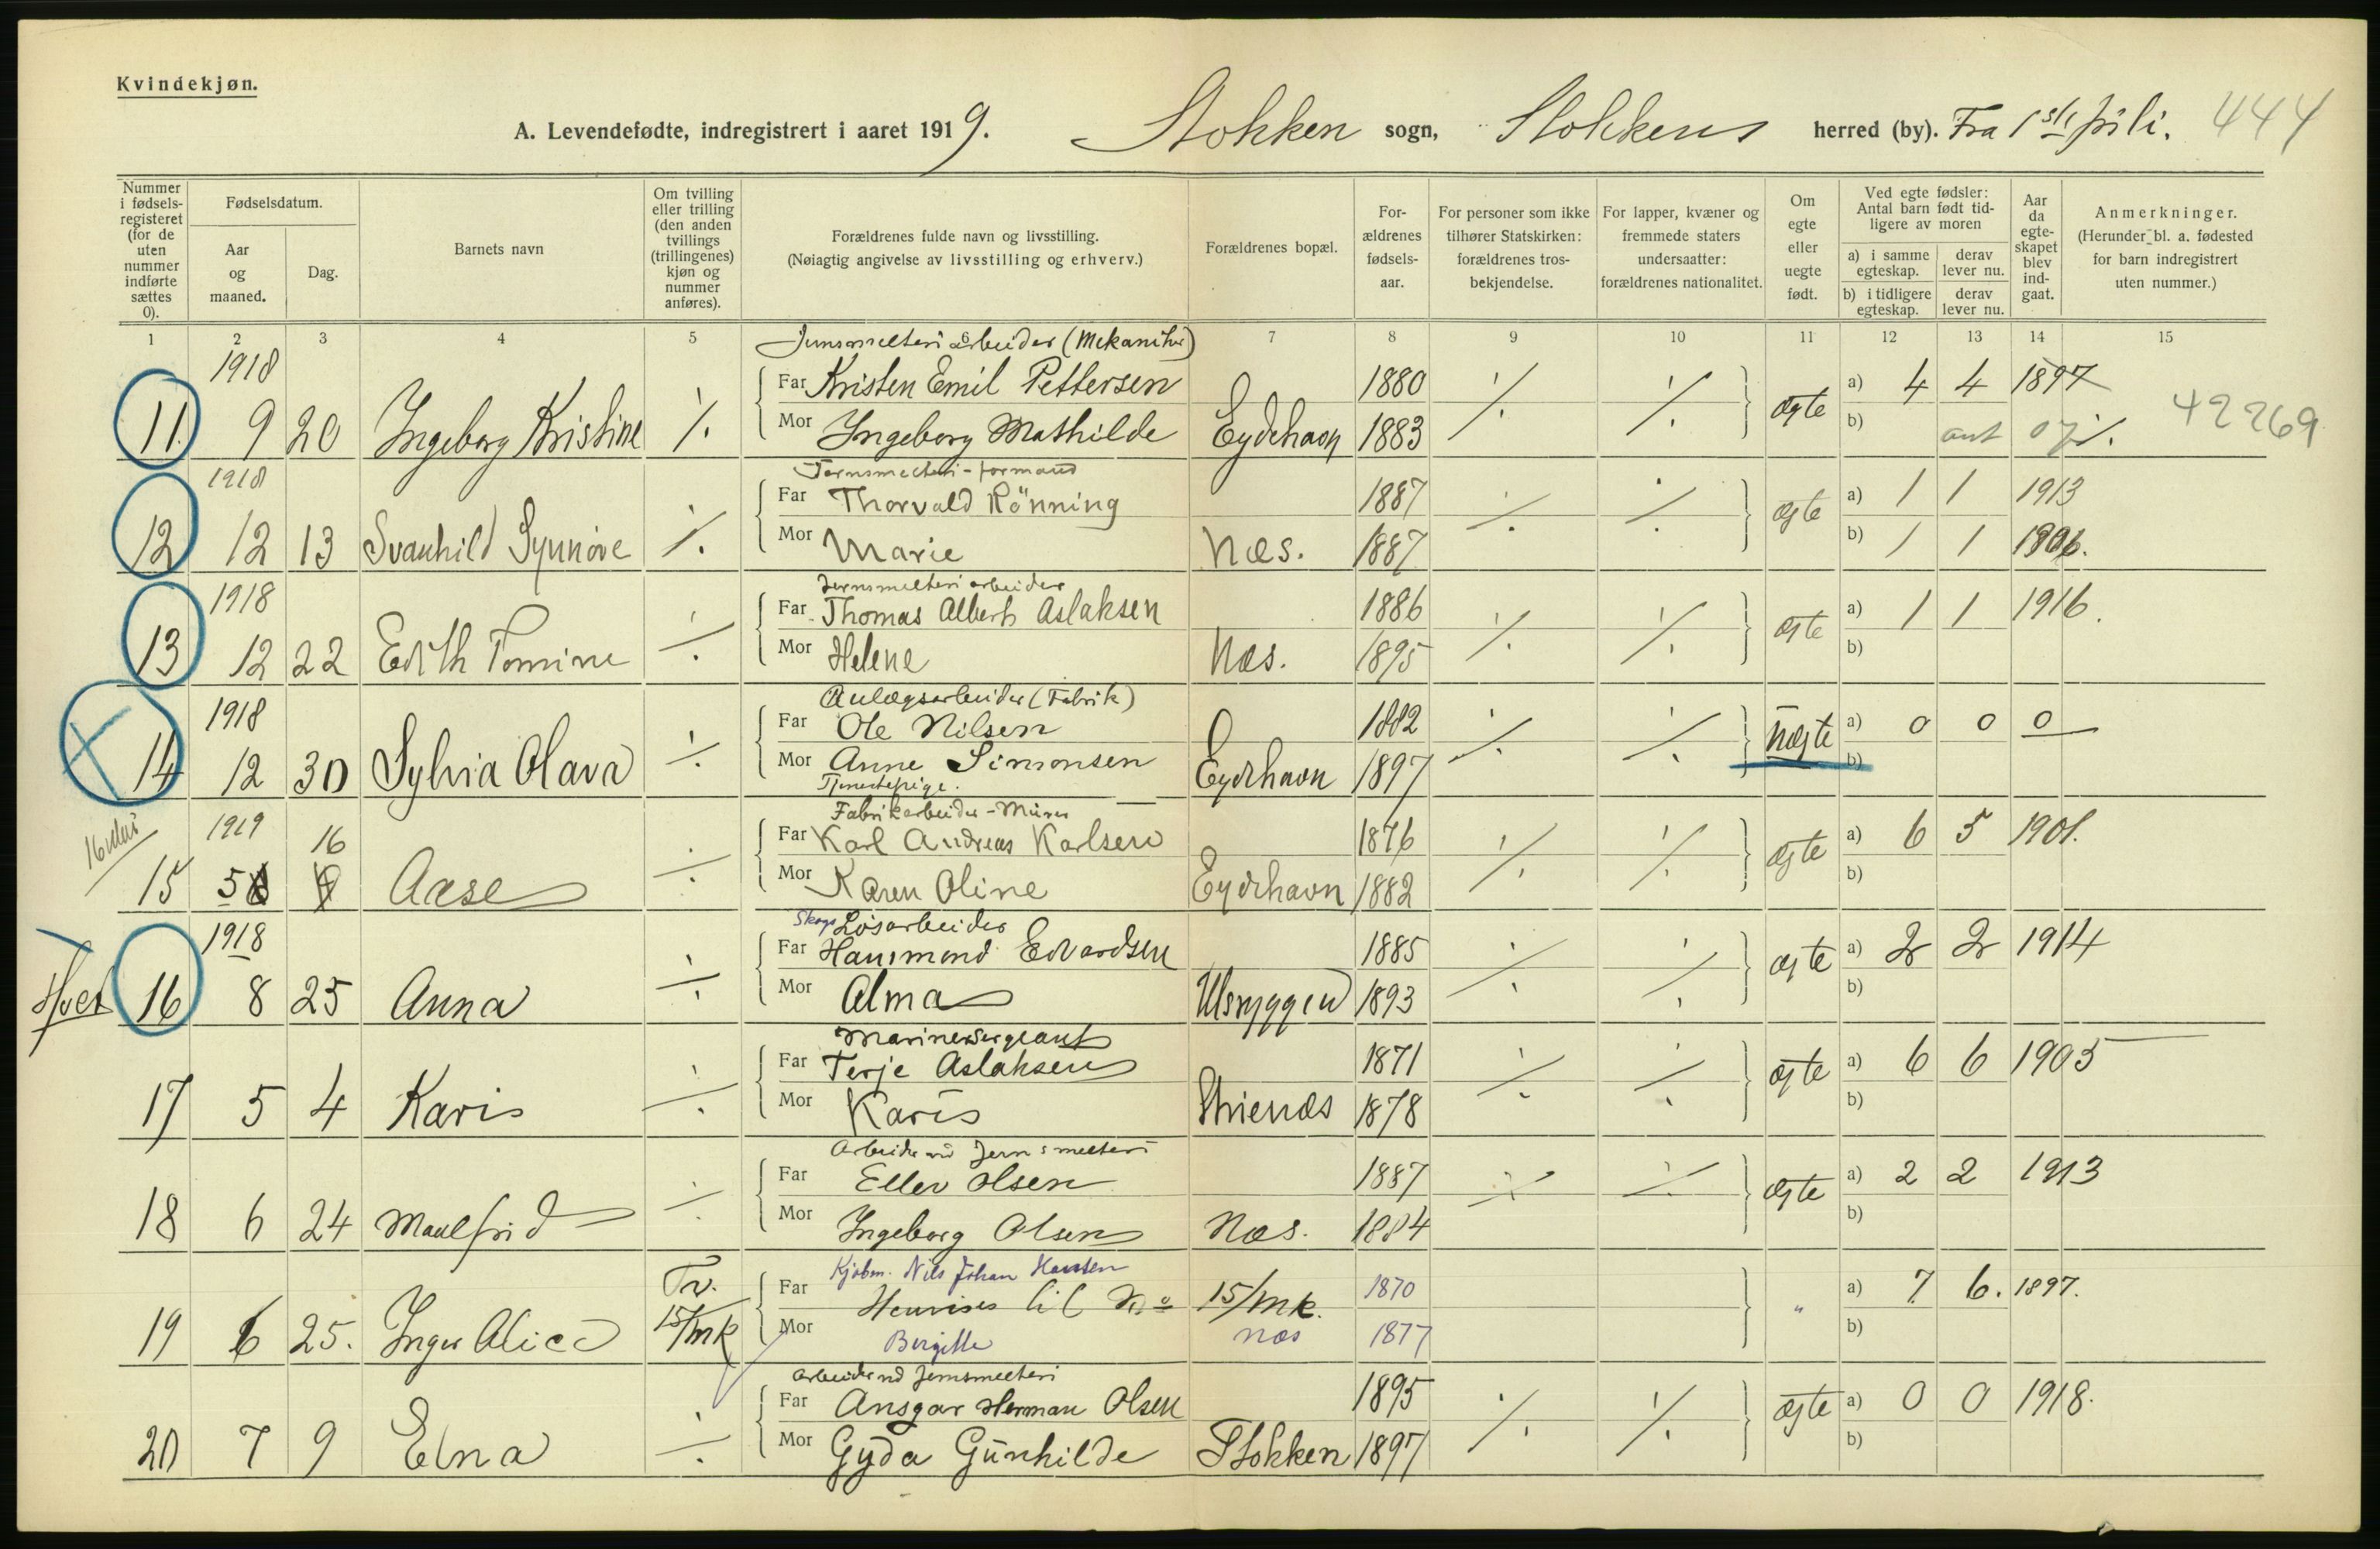 Kvindekjøn.
A. Levendefødte, indregistrert i aaret 1919. Stokken sogn, Stokkens herred (by). Fra 1ste juli. 444
Nummer i fødsels-registeret (for de uten nummer indførte sættes 0).
Fødselsdatum.
Aar og maaned.
Dag.
Barnets navn
Om tvilling eller trilling (den anden tvillings (trillingenes) kjøn og nummer anføres).
Forældrenes fulde navn og livsstilling.
(Nøiagtig angivelse av livsstilling og erhverv.)
Forældrenes bopæl.
For-ældrenes fødsels-aar.
For personer som ikke tilhører Statskirken: forældrenes tros-bekjendelse.
For lapper, kvæner og fremmede staters undersaatter: forældrenes nationalitet.
Om egte eller uegte født.
Ved egte fødsler: Antal barn født tid-ligere av moren
a) i samme egteskap.
derav lever nu.
b) i tidligere egteskap.
derav lever nu.
Aar da egte-skapet blev ind-gaat.
Anmerkninger.
(Herunder bl. a. fødested for barn indregistrert uten nummer.)
1 2 3 4 5 6 7 8 9 10 11 12 13 14 15
Jernsmelteriarbeider (Mekaniker)
1918 Far Kristen Emil Pettersen 1880 ./. ./. ægte a) 4 4 1897
11. 9 20 Ingeborg Kristine ./. Mor Ingeborg Mathilde Eydehavn 1883 b) ant 07 ./. 42269
Jernsmelteri-formand
1918 Far Thorvald Rönning 1887 ./. ./. ægte a) 1 1 1913
12 12 13 Svanhild Synnøve ./. Mor Marie Næs. 1887 b) 1 1 1906.
Jernsmelteriarbeider
1918 Far Thomas Albert Aslaksen 1886 ./. ./. ægte a) 1 1 1916.
13 12 22 Edith Tomine ./. Mor Helene Næs. 1895 b)
Anlægsarbeider (Fabrik)
1918 Far Ole Nilsen 1882 ./. ./. uægte a) 0 0 0
14 12 30 Sylvia Olava ./. Mor Anne Simonsen Eydehavn 1897 b)
Tjenestepige.
Fabrikarbeider - Murer
1919 16 Far Karl Andreas Karlsen 1876 ./. ./. ægte a) 6 5 1901.
15 5 Aase ./. Mor Karen Oline Eydehavn 1882 b)
Skogs Løsarbeider
1918 Far Hammond Edvardsen 1885 ./. ./. ægte a) 2 2 1914
16 8 25 Anna ./. Mor Alma Ulsryggen 1893 b)
Marinesergeant
Far Terje Aslaksen 1871 ./. ./. ægte a) 6 6 1905
17 5 4 Karis ./. Mor Karis 1878 b)
Arbeider ved Jernsmelteri
Far Ellev Olsen 1887 ./. ./. ægte a) 2 2 1913
18 6 24 Maalfrid ./. Mor Ingeborg Olsen Næs. 1884 b)
Kjøbm. Nils Johan Hansen
Tv. Far Henvises til No 15/mk. 1870 " a) 7 6. 1897.
19 6 25. Inger Alice 15/mk Mor Bergitte Næs 1877 b)
Arbeider ved Jernsmelteri
Far Ansgar Herman Olsen 1895 ./. ./. ægte a) 0 0 1918.
20 7 9 Elna ./. Mor Gyda Gunhilde Stokken 1897 b)